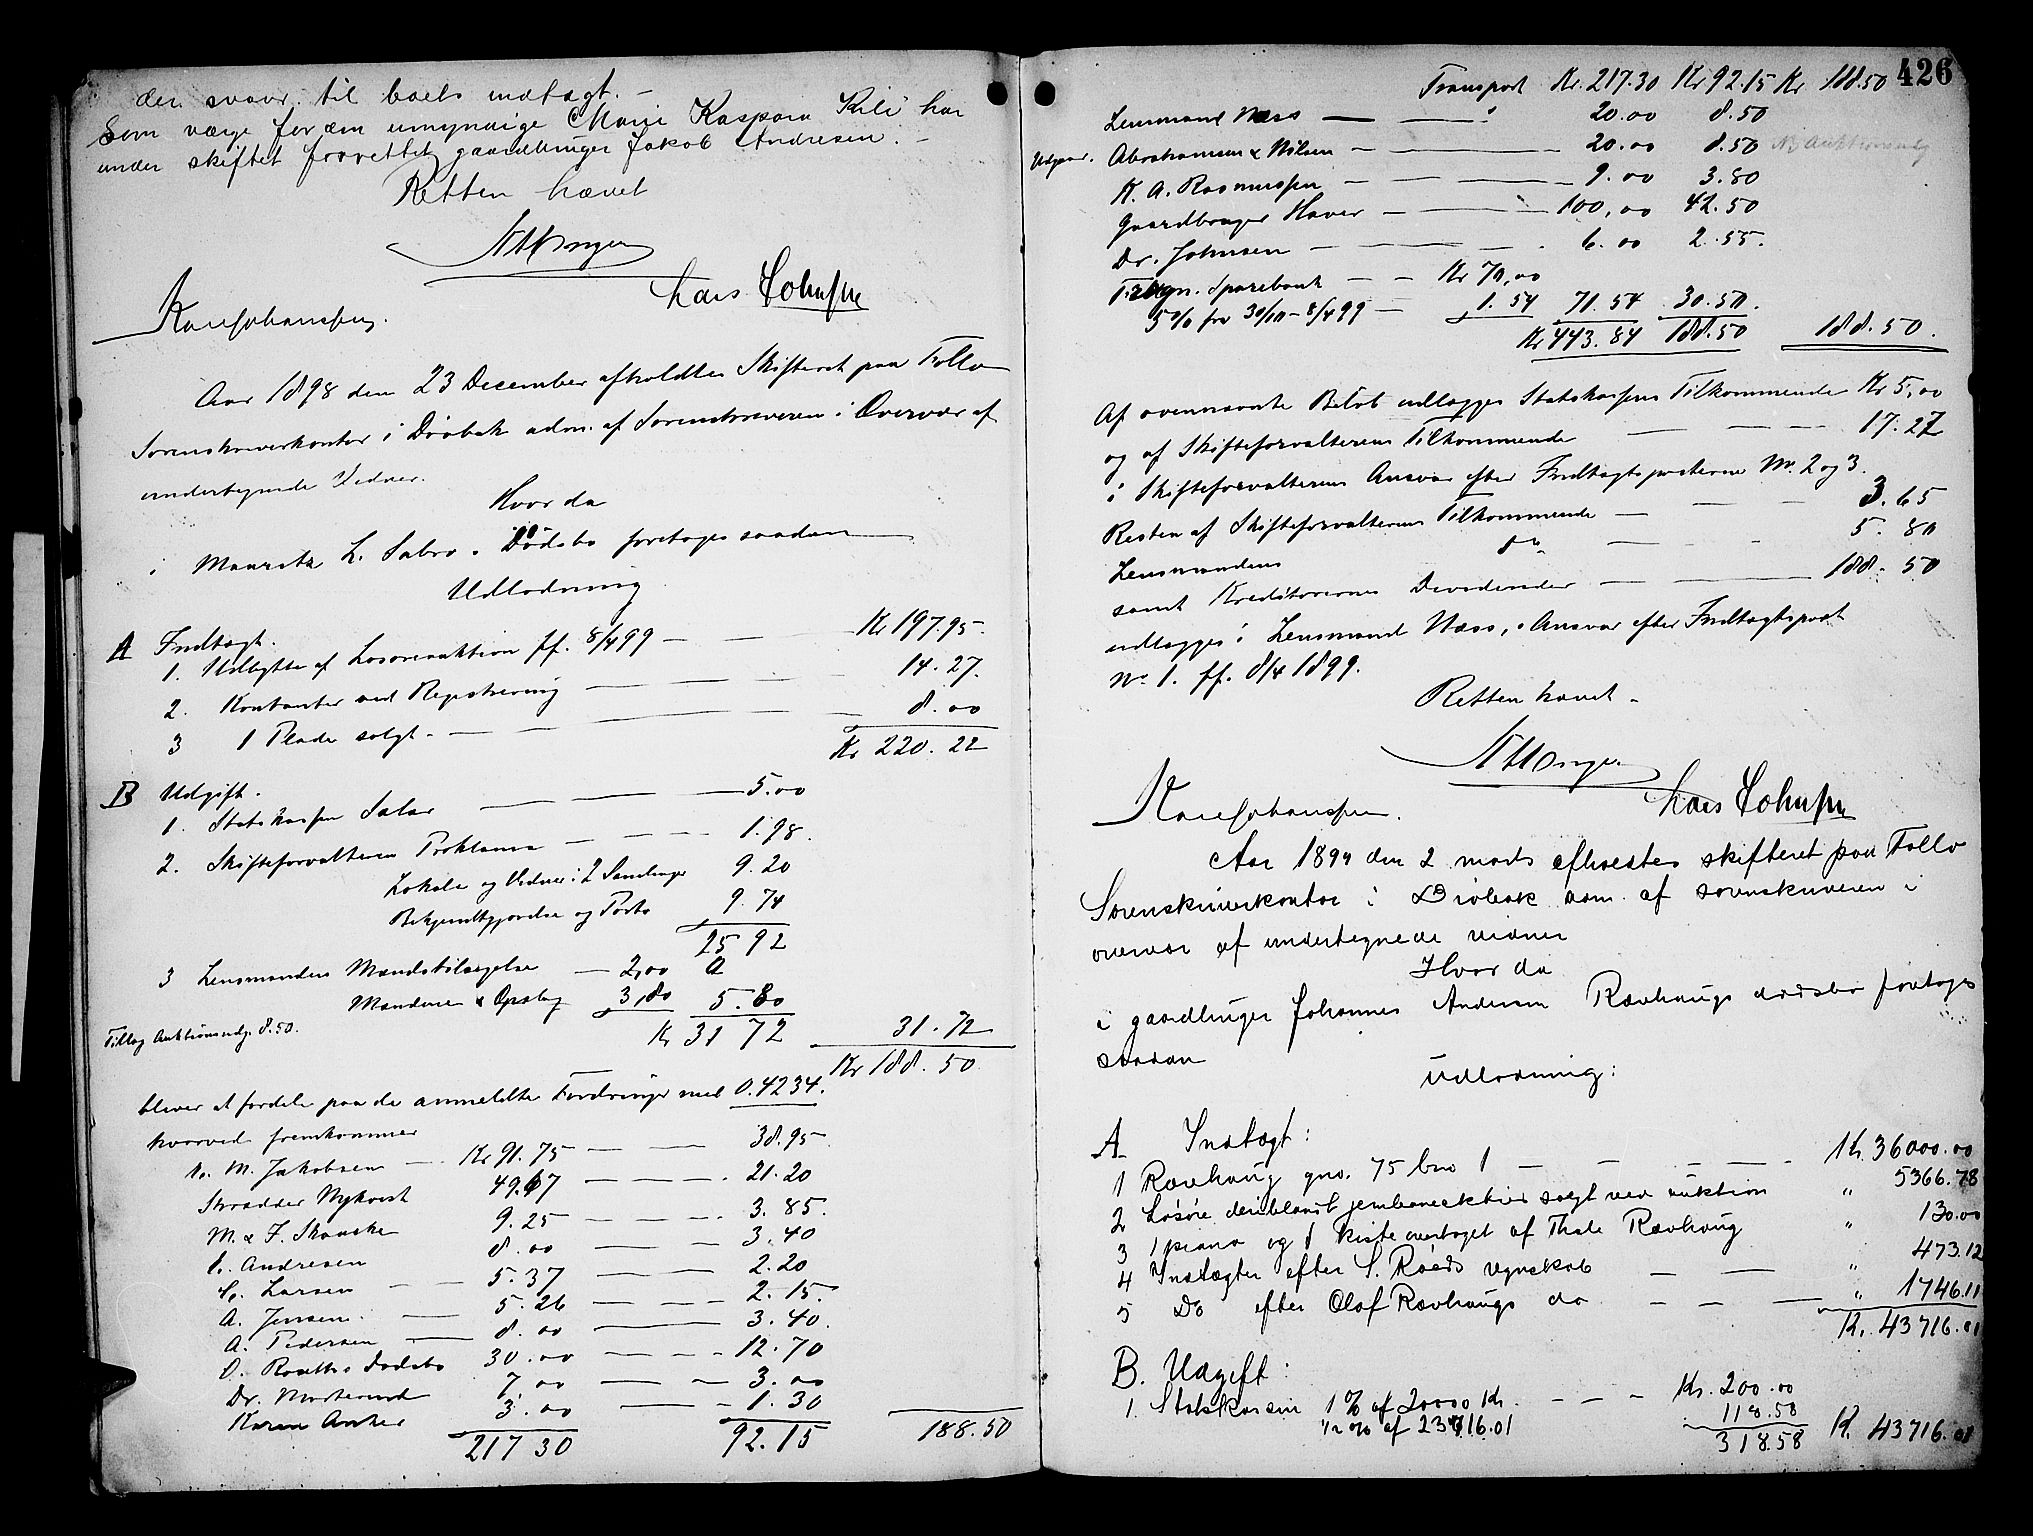 der svarer til boets indtægt. –
Som værge for den umyndige Marie Kaspara Kili har
under skiftet fravettet gaardbruger Jakob Andresen. –
Retten hævet
Lars Johnsen
Karl Johanssen.
Aar 1898 den 23 December afholdtes Skifteret paa Follo
Sorenskriverkontor i Drøbak adm. af Sorenskriveren i Overvær af
undertegnede Vidner.
Hvor da
i Mauritz L. Sabro's Dødsbo foretoges saadan
Udlodning
A Indtægt.
1. Udbytte af Løsøreauktion ff. 8/4 99 — — Kr 197.95.
2. Kontanter ved Registrering — — — 14.27.
3 1 Plade solgt. — — — 8.00
Kr 220.22
B Udgift.
1. Statskassen Salær — — — 5.00
2. Skifteforvalteren Proklama — — — 1.98.
Lokale og Vidner i 2 Samlinger 9.20
Bekjendtgjørelse og Porto 9.74
25 92
3 Lensmandens Mændstilsigelse — 2,00
Mændene & Opslag 3,80 5.80
Tillag Auktionsudg. 8.50. Kr 31 72 31.72
Kr 188.50
bliver at fordele paa de anmeldte Fordringer med 0.4234.
hvorved fremkommer
M. Jakobsen — Kr 91.75 — — 38.95
Skrædder Nykvist 49.67 — — 21.20
M. & F. Skanche 9.25 — — 3.85.
Andresen 8.00 — — 3.40
C. Larsen — — 5.37 — — 2.20
A. Jensen — 5.26 — — 2.15.
A. Pedersen — 8.00 — 3.40.
O. Rouths Dødsbo 30.00 — — 12.70
Dr. Morterud 7.00 — — 3.00
Karen Anker 3.00 — — 1.30
217 30 92.15 188.50
426
Transport Kr. 217.30 Kr 92.15 Kr 188.50
Lensmand Næss — — 20.00 8.50
Udgaar. Abrahamsen & Nilsen — — — 20.00 8.50 NB Auktionsudg
K. A. Rasmussen — — — 9.00 3.80
Gaardbruger Haver — — — 100,00 42.50
Dr. Johnsen — — — 6.00 2.55.
Sparebank — — Kr 70,00
5% fra 30/10 – 8/4 99 — 1.54 71.54 30.50.
Kr 443.84 188.50 188.50.
Af ovennævnte Beløb udlægges Statskassens Tilkommende Kr 5,00
og af Skifteforvalterens Tilkommende — — — 17.27
i Skifteforvalterens Ansvar efter Indtægtsposterne No. 2 og 3.
Resten af Skifteforvalterens Tilkommende — — — 3.65
Lensmandens do — — 5.80
samt Kreditorernes Dividender — — — 188.50
udlægges i Lensmand Næss's Ansvar efter Indtægtspost
No 1. ff. 8/4 1899.
Retten hævet –
Lars Johnsen
Karl Johanssen.
Aar 1899 den 2 mars afholdtes skifteret paa Follo
Sorenskriverkontor i Drøbak adm. af sorenskriveren i
overvær af undertegnede vidner
Hvor da
i gaardbruger Johannes Andersen Ravhaugs dødsbo foretoges
saadan
Udlodning:
A Indtægt:
1 Ravhaug gno. 75 bno 1 — — — Kr. 36000.00
2 Løsøre deriblandt jernbaneaktier solgt ved auktion „ 5366.78
3 1 piano og 1 kiste overtaget af Thale Ravhaug „ 130.00
4 Indtægter efter S. Roeds regnskab — — „ 473.12
5 Do efter Olaf Ravhaugs do — — — „ 1746.11
Kr. 43716.01
B. Udgift:
1. Statskassen 1% af 20000 Kr. — — – Kr. 200.00
½% af 23716.01 118.58
318.58 Kr. 43716.01